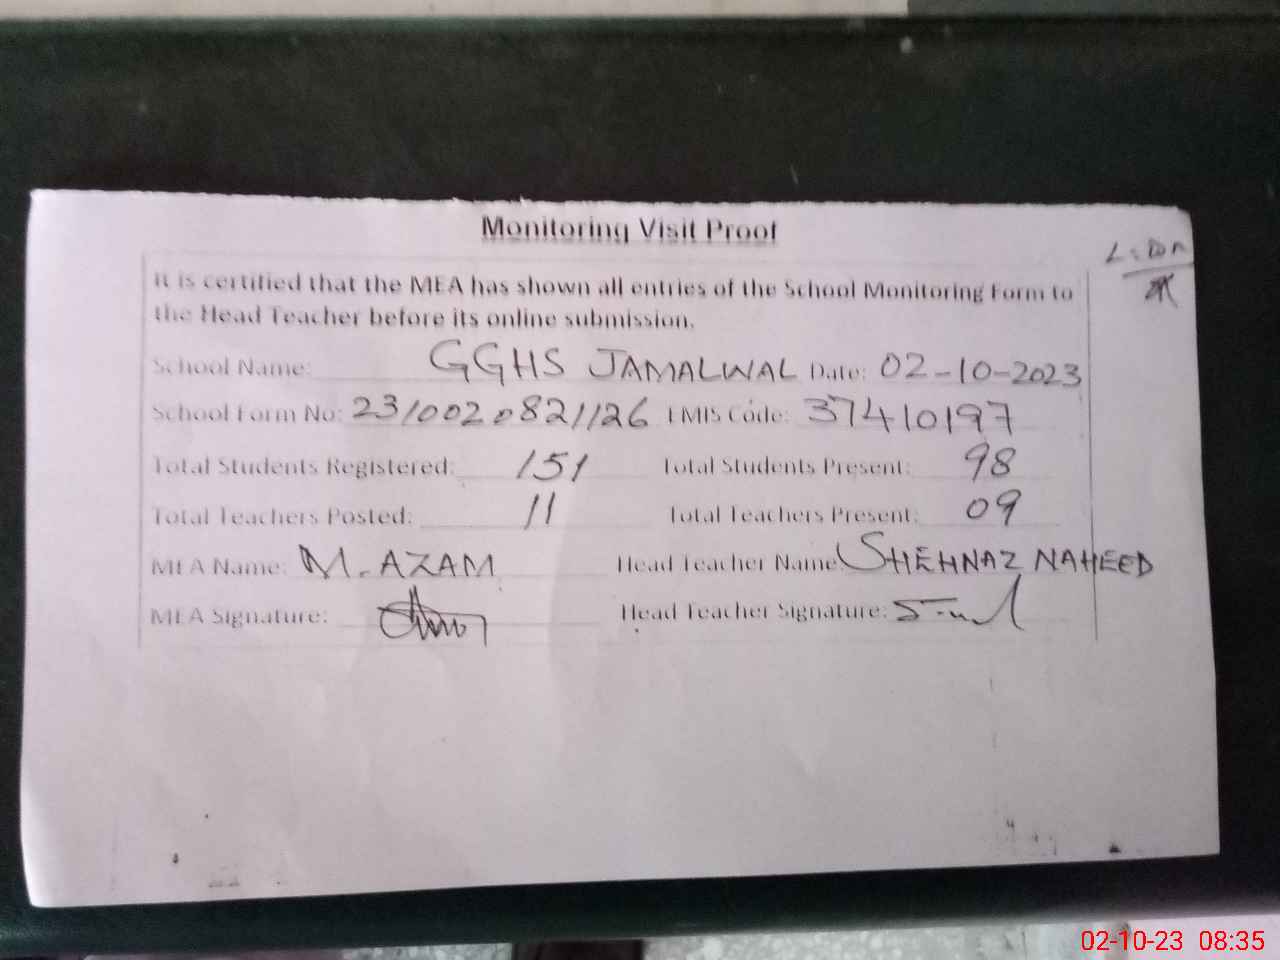 Monitoring Visit Proof
It is certified that the MEA has shown all entries of the School Monitoring Form to
the Head Teacher before its online submission.
School Name: GGHS JAMALWAL Date: 02-10-2023
School Form No: 2310020821126 EMIS Code: 37410197
Total Students Registered: 151 Total Students Present: 98
Total Teachers Posted: 11 Total Teachers Present: 09
MEA Name: M. AZAM Head Teacher Name: SHEHNAZ NAHEED
MEA Signature: Head Teacher Signature:
02-10-23 08:35